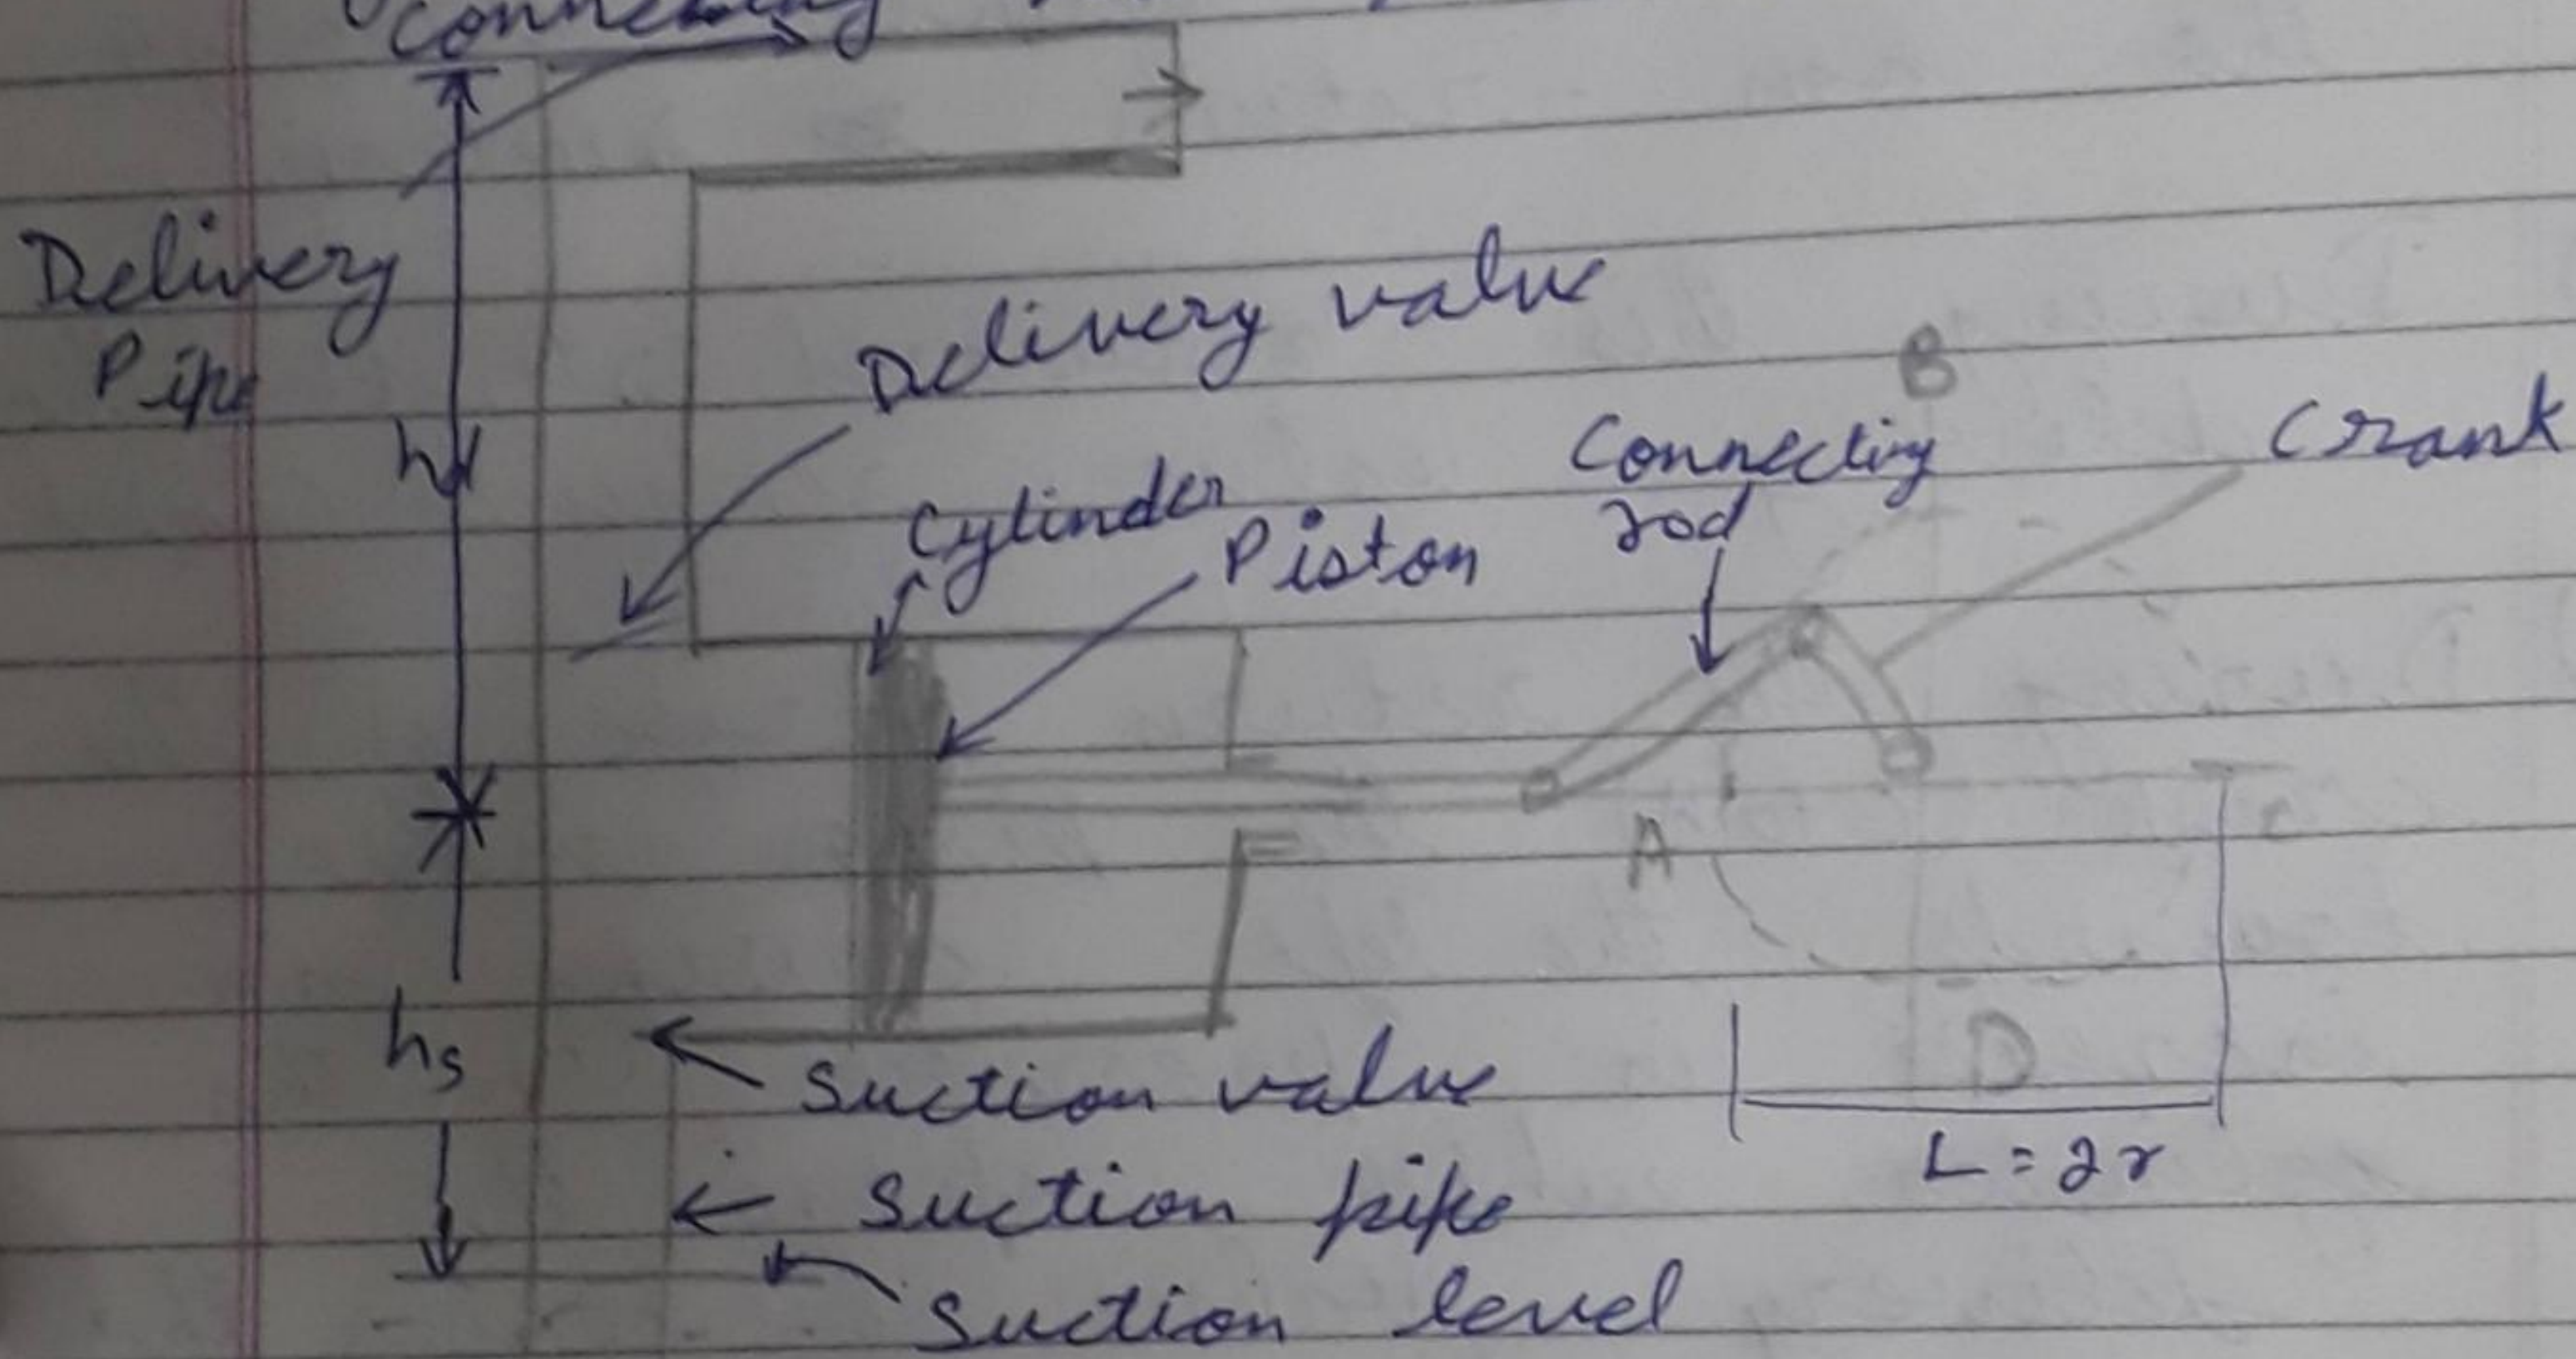 Connecting
Delivery
Pipe
Delivery value
hd
Cylinder
Piston
Connecting
rod
B
Crank
A
C
D
hs
Suction value
L = 2r
Suction pipe
Suction level